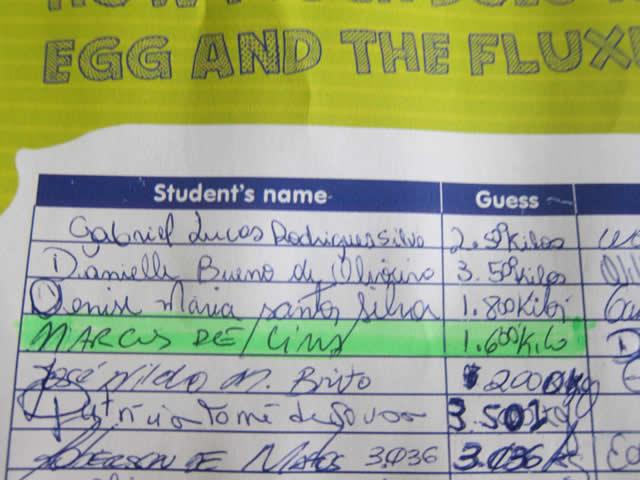 EGG AND THE FLUX
Student's name Guess
Gabriel Lucas Rodrigues Silva 2.500kilos
Danielle Bueno de Oliveira 3.500kilos
Denise Maria Santos Silva 1.800Kilos
MARCUS DE LIMA 1.600KILO
José Nildo M. Brito 2000kg
Patrícia Tomé de Souza 3.501kg
DE MATOS 3.036 3.036